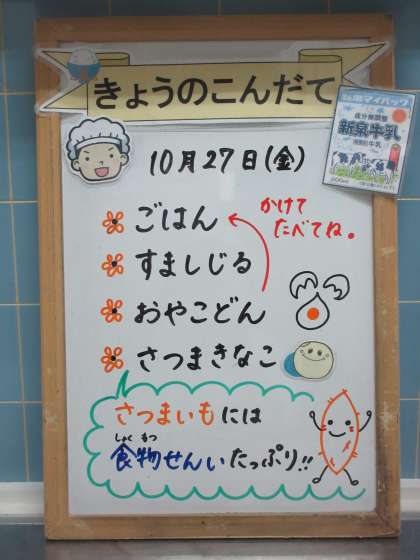 きょうのこんだて
10月27日(金)
ごはん
かけて
たべてね。
すましじる
おやこどん
さつまきなこ
さつまいもには
しょく もつ
食物せんいたっぷり!!
マイパック
成分無調整
新泉牛乳
200ml